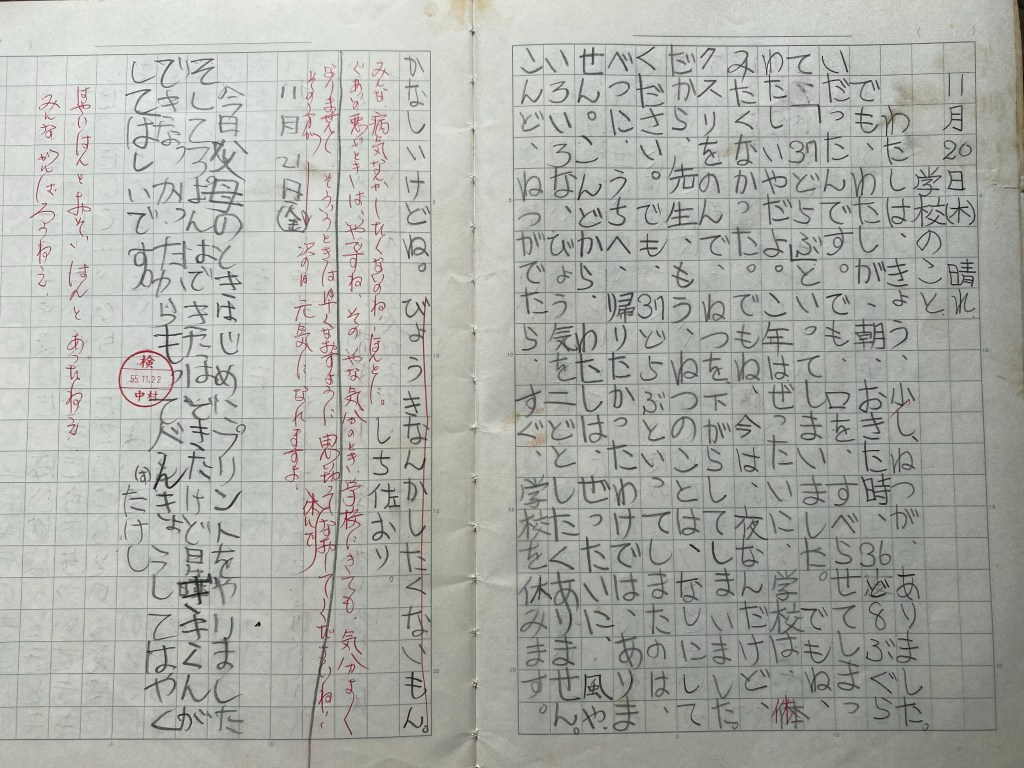 11月20日(木) 晴れ
学校のこと
わたしは、きょう、少し、ねつが、ありました。
でも、わたしが、朝、おきた時、36ど8ぶぐら
いだったんです。でも、口を、すべらせてしまっ
て、「37ど5ぶ」といってしまいました。でもね、
わたしいやだよ。こ年はぜったいに、学校は、休
みたくなかった。でもね、今は、夜なんだけど、
クスリをのんで、ねつを下がらしてしまいました。
だから、先生、もう、ねつのことは、なしにして
ください。でも、37ど5ぶといってしまたのは、
べつに、うちへ、帰りたかったわけでは、ありま
せん。こんどから、わたしは、ぜったいに、風や、
いろいろな、びょう気を二どとしたくありません。
こんど、ねつがでたら、すぐ、学校を休みます。
かなしいけどね。びょうきなんかしたくないもん。
しち佐おり。
みんな病気なんかしたくないのね、ほんと…。
ぐあい悪いときは、いやですね、そのいやな気分のとき、学校にきても、気分よく
なりませんし、そういうときは早くなおすように思い切って
休んで
次の日、元気になれますよ。
11月21日(金)
今日父母のときはじめにプリントをやりました
そしてはできたはできたけどきくんが
できなっかったからもってべんきょうしてはやく
してほしいです。
たけし
検
55.11.22
中村
あったねえ。
みんながんばろうねえ。